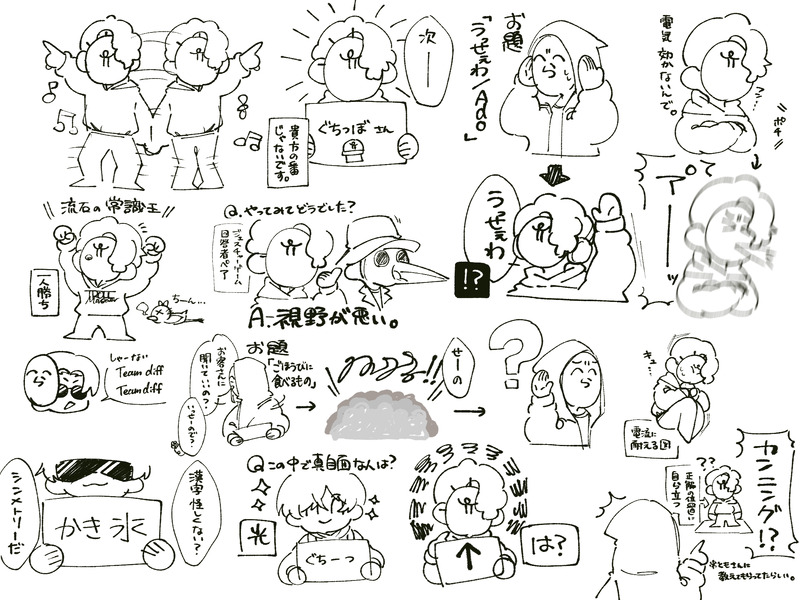 次ーー
ぐちつぼさん
貴方の番
じゃないです。
お題
「うっせぇわ/Ado」
電気効かないんで。
ポチ
アーーーッ
うっせぇわ
!?
流石の常識王
一人勝ち
ちーん…
Q.やってみてどうでした?
ジェスチャーゲーム
回答者ペア
A.視野が悪い。
しゃーない
Team diff
Team diff
お題
「ごほうびに
食べるもの」
お客さんに
聞いていいの?
いっせーので?
せーの
?
キュ…
電流に
耐える図
シンメトリーだ
かき氷
漢字怪しくない?
Qこの中で真面目なんは?
光
ぐちーつ
↑
は?
カンニング!?
??
正解の位置に
自ら立つ
※ともさんに
教えてもらってたらしい。